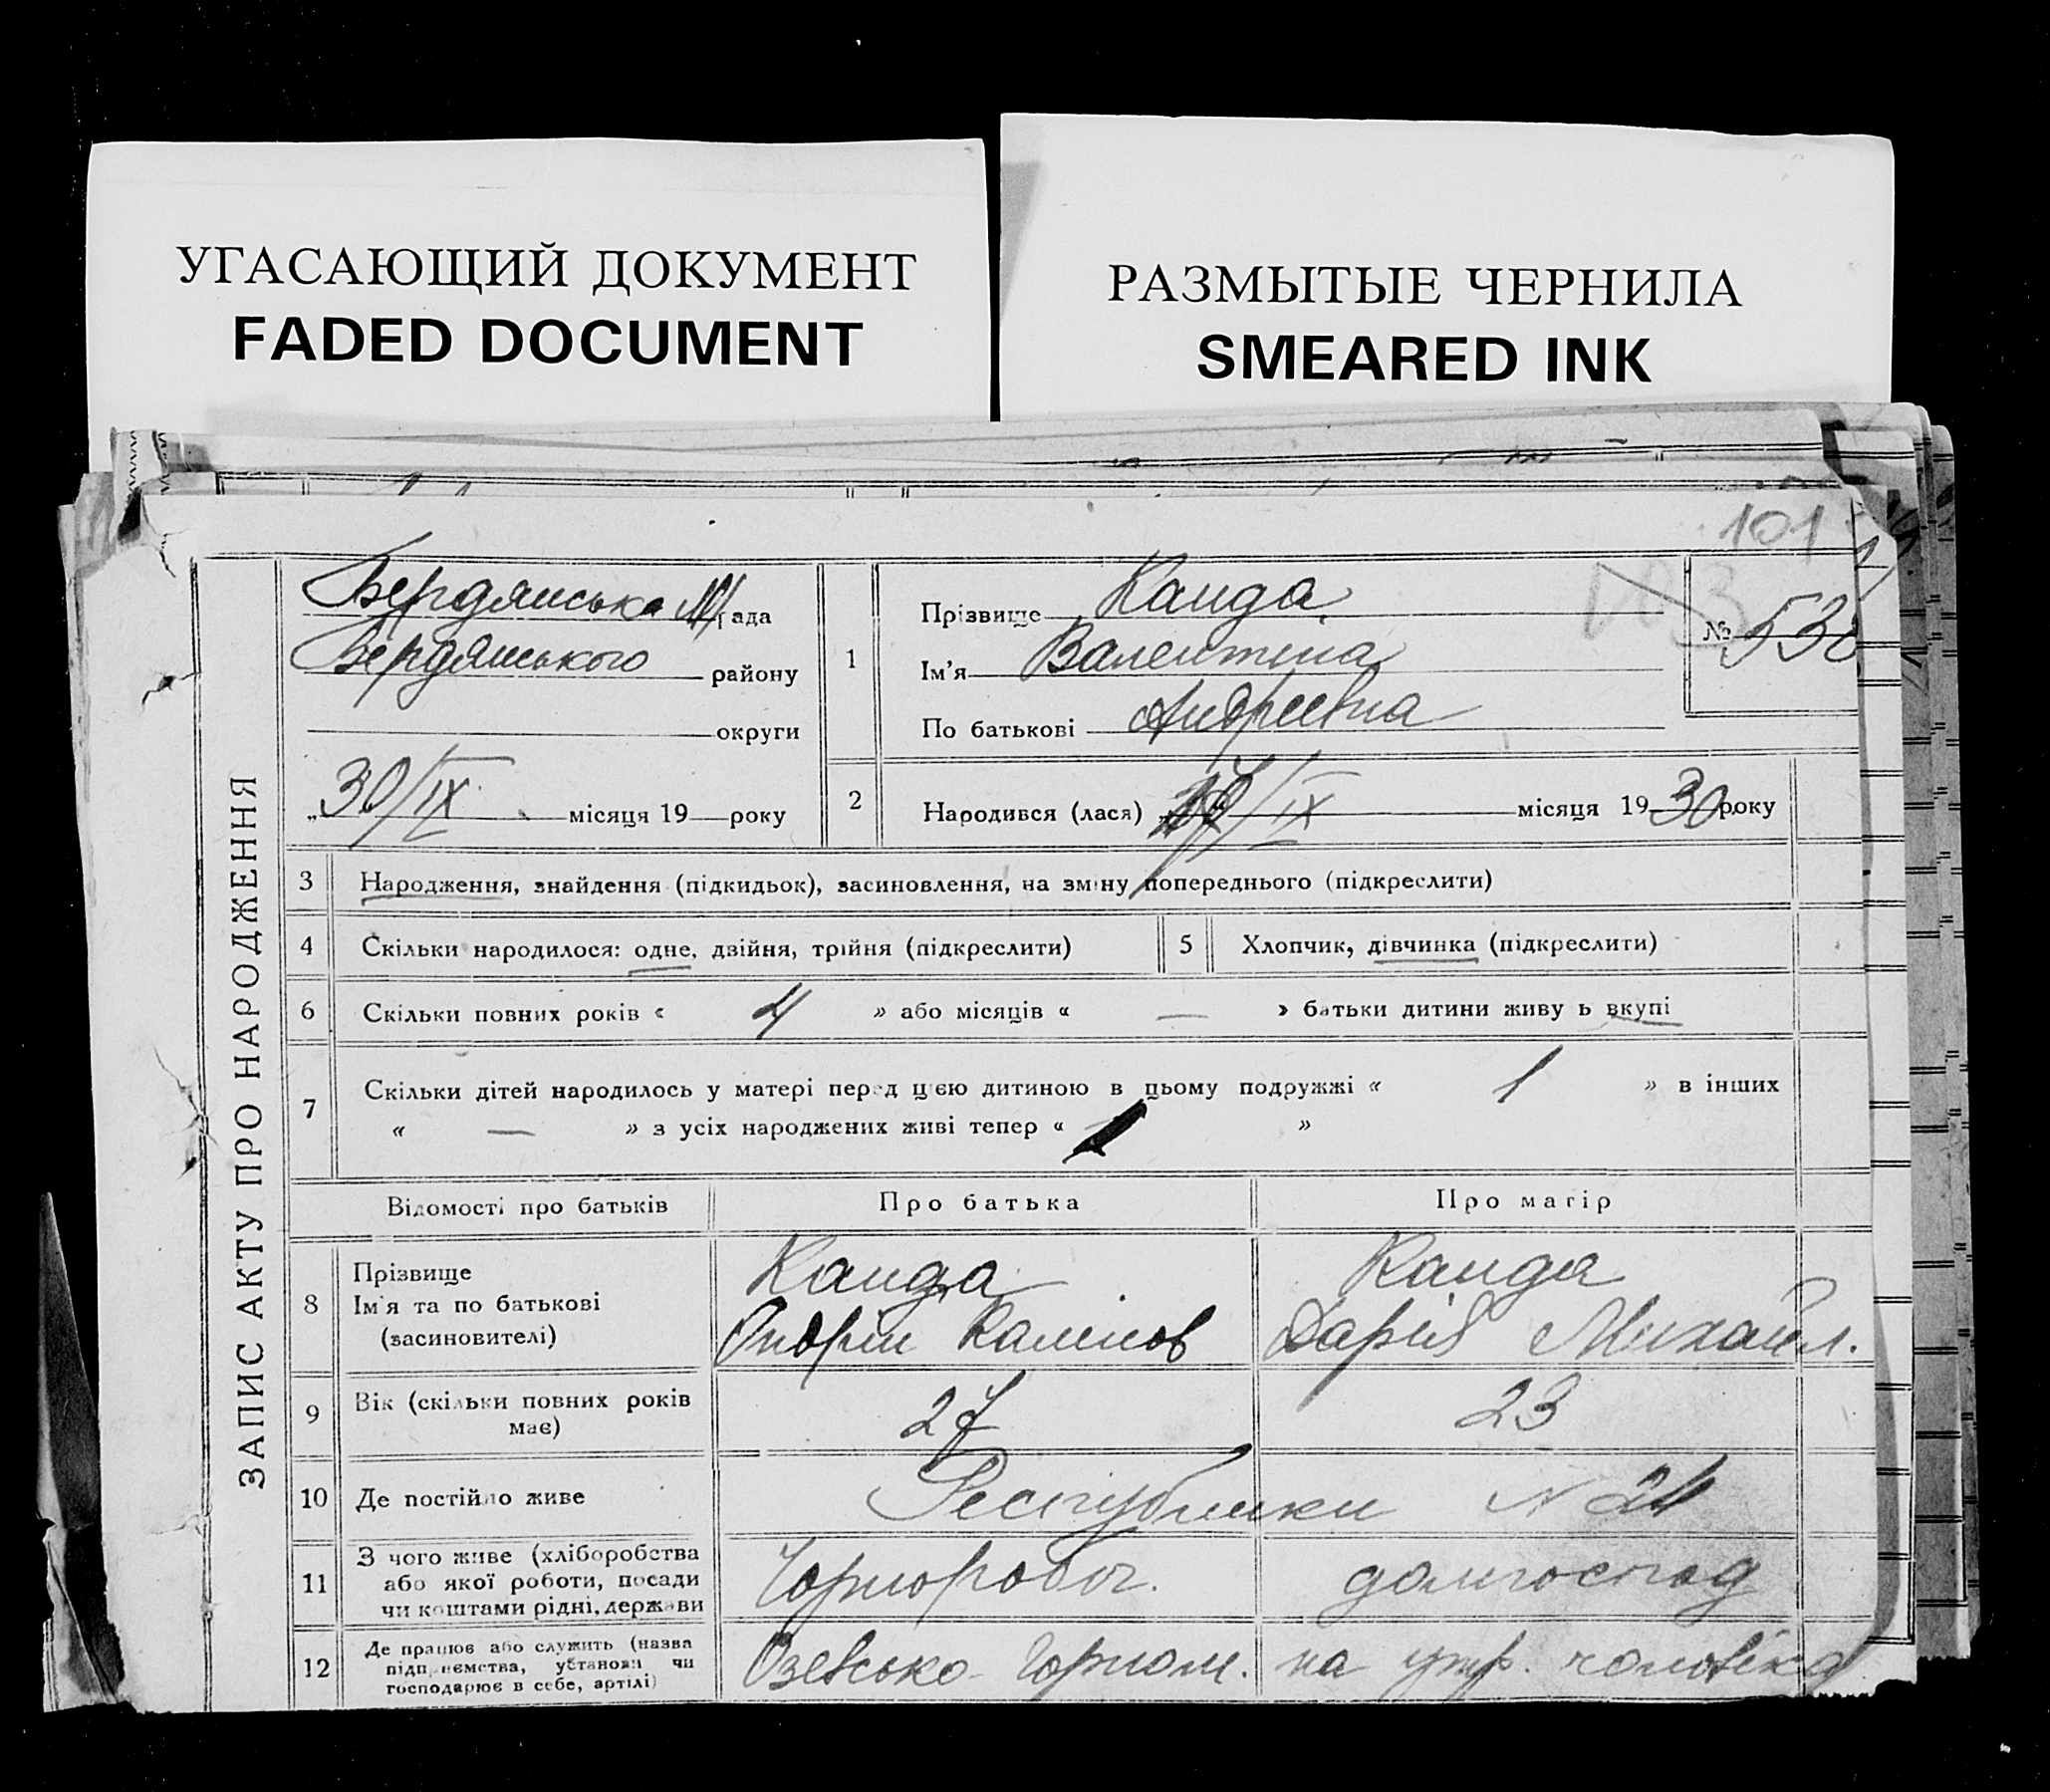 УГАСАЮЩИЙ ДОКУМЕНТ
FADED DOCUMENT
РАЗМЫТЫЕ ЧЕРНИЛА
SMEARED INK
101
ЗАПИС АКТУ ПРО НАРОДЖЕННЯ
Бердянська М рада
Бердянського району
округи
„30/IX місяця 19 року
1
Прізвище Канда
Ім'я Валентина
По батькові Андреевна
№ 538
2 Народився (лася) /IX місяця 1930 року
3 Народження, знайдення (підкидьок), засиновлення, на зміну попереднього (підкреслити)
4 Скільки народилося: одне, двійня, трійня (підкреслити)
5 Хлопчик, дівчинка (підкреслити)
6 Скільки повних років « 4 » або місяців « — » батьки дитини живу ь вкупі
7 Скільки дітей народилось у матері перед цією дитиною в цьому подружжі « 1 » в інших
« — » з усіх народжених живі тепер « »
Відомості про батьків Про батька Про матір
8 Прізвище
Ім'я та по батькові
(засиновителі)
Канда
Андрій Калінов
Канда
Дарія Михайл.
9 Вік (скільки повних років
має)
27 23
10 Де постійно живе Республики N 24
11 З чого живе (хліборобства
або якої роботи, посади
чи коштами рідні, держави
Чорнороboч. домгоспод
12 Де працює або служить (назва
підприємства, установи чи
господарює в себе, артілі)
на утр. чоловіка